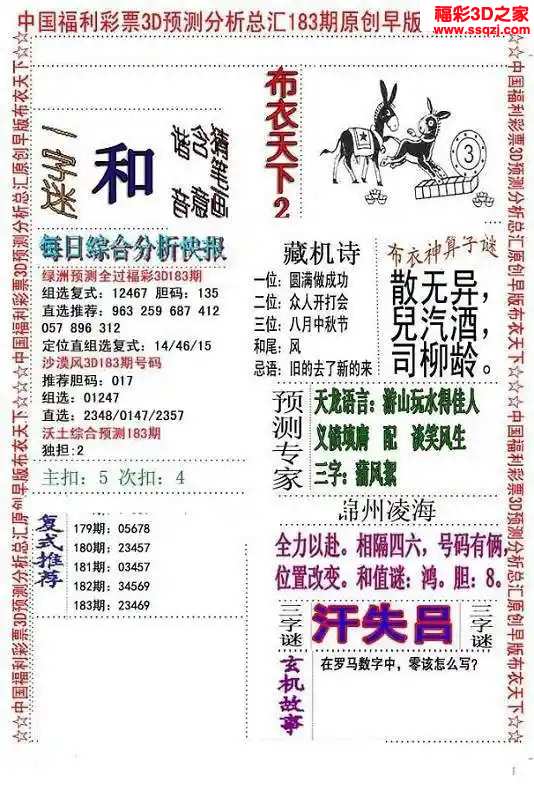 福彩3D之家
www.ssqzj.com
中国福利彩票3D预测分析总汇183期原创早版
☆☆中国福利彩票3D预测分析总汇原创早版布衣天下☆☆
一字谜
和
猜生肖
含意画
布衣天下2
3
每日综合分析快报
绿洲预测全过福彩3D183期
组选复式：12467 胆码：135
直选推荐：963 259 687 412
057 896 312
定位直组选复式：14/46/15
沙漠风3D183期号码
推荐胆码：017
组选：01247
直选：2348/0147/2357
沃土综合预测183期
独担:2
主扣：5 次扣：4
藏机诗
一位：圆满做成功
二位：众人开打会
三位：八月中秋节
和尾：风
忌语：旧的去了新的来
布衣神算子谜
散无异，
兒汽酒，
司柳龄。
预测专家
天龙语言：游山玩水得佳人
配 谈笑风生
三字：蒲风絮
锦州凌海
全力以赴。相隔四六，号码有俩，
位置改变。和值谜：鸿。胆：8。
复式推荐
179期：05678
180期：23457
181期：03457
182期：34569
183期：23469
三字谜
汗失吕
三字谜
玄机故事
在罗马数字中，零该怎么写？
☆☆中国福利彩票3D预测分析总汇原创早版布衣天下☆☆